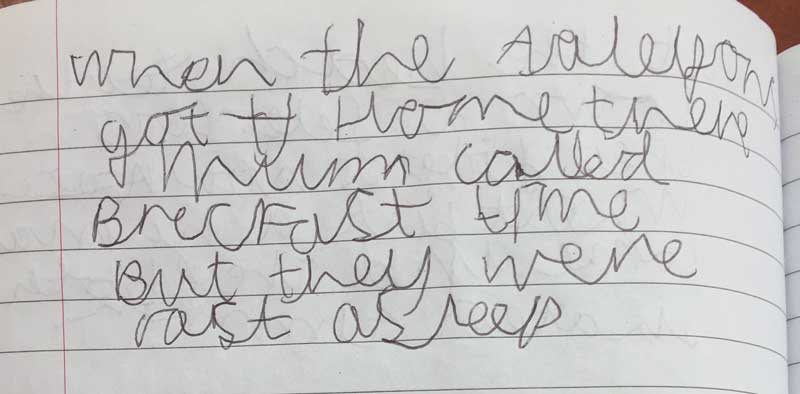 when the Aalefons
got tt Home there
mum called
Brecfast time
But they were
rast asleep